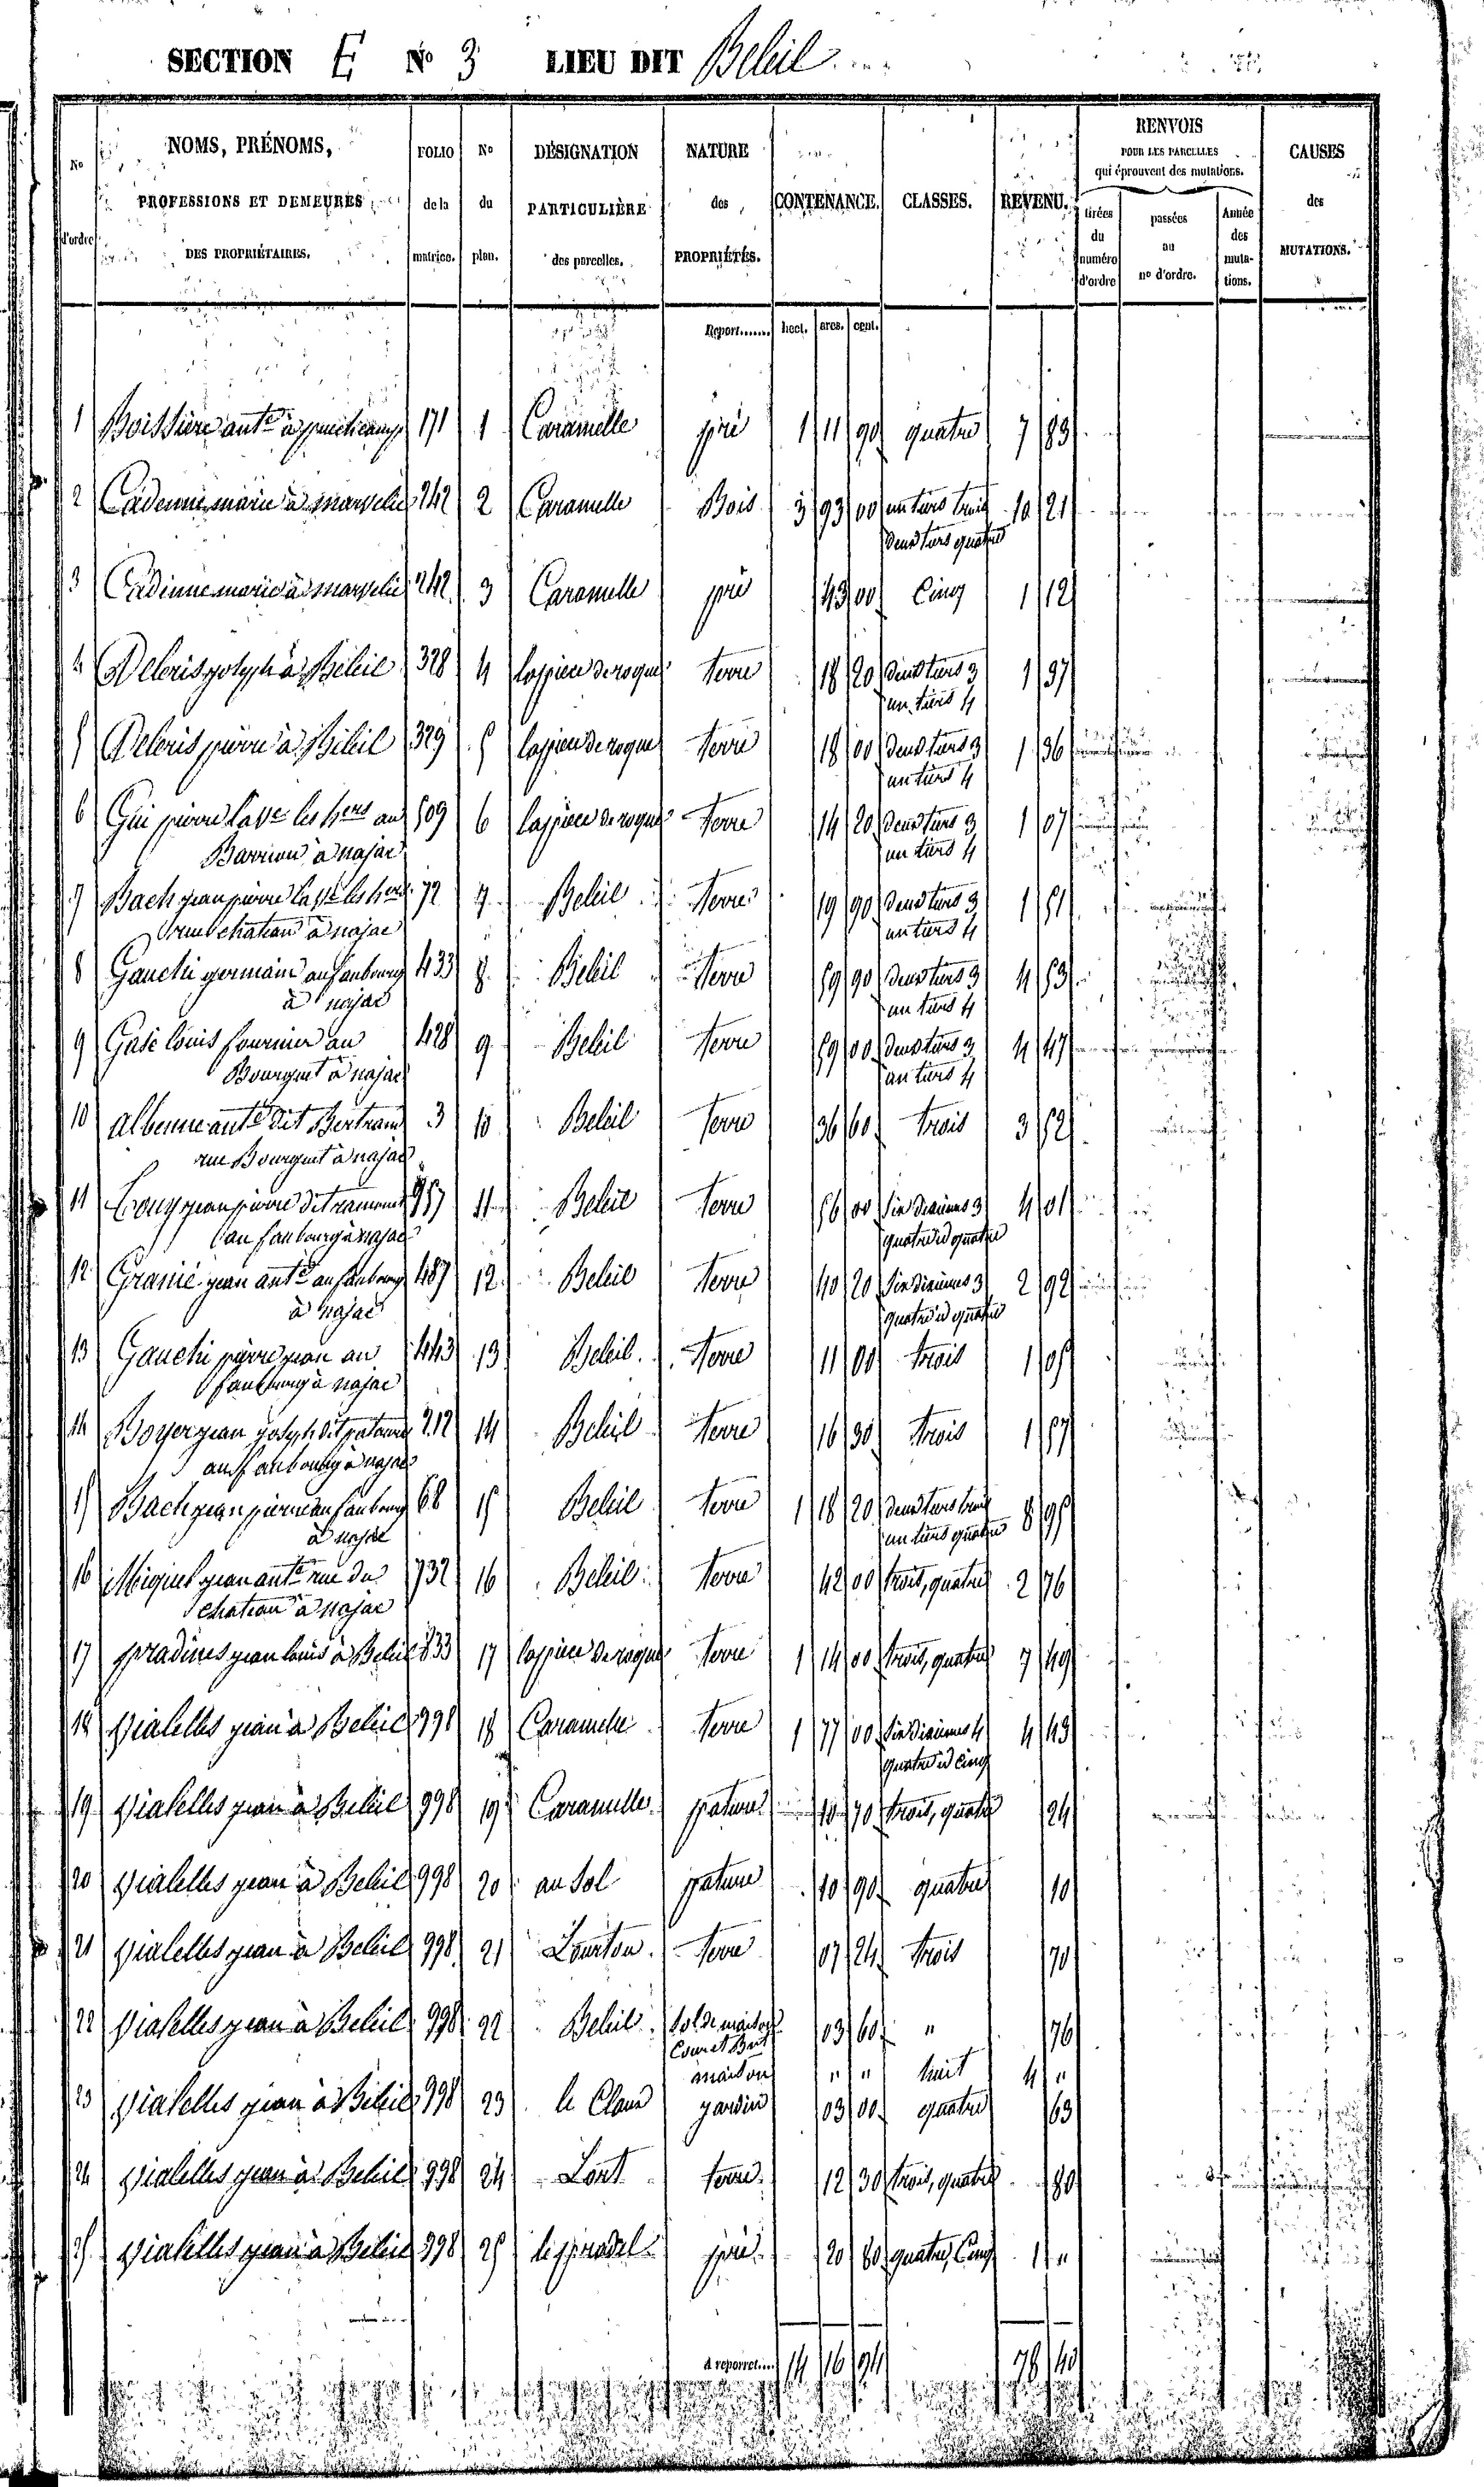 SECTION E No 3 LIEU DIT Beleil
No d'ordre NOMS, PRÉNOMS, PROFESSIONS ET DEMEURES DES PROPRIÉTAIRES. FOLIO de la matrice. No du plan. DÉSIGNATION PARTICULIÈRE des parcelles. NATURE des PROPRIÉTÉS. CONTENANCE. CLASSES. REVENU. RENVOIS POUR LES PARCELLES qui éprouvent des mutations. tirées du numéro d'ordre passées au no d'ordre. Année des mutations. CAUSES des MUTATIONS.
Report....... hect. ares. cent.
1 Boissière ante à puechicamp 171 1 Caramelle pré 1 11 90 quatre 7 83
2 Cadenne marie à marvelie 242 2 Caramelle Bois 3 93 00 un tiers trois 10 21
deux tiers quatre
3 Cadenne marie à marvelie 242 3 Caramelle pré 43 00 Cinq 1 12
4 Deleris joseph à Beleil 328 4 la piece de roques terre 18 20 deux tiers 3 1 37
un tiers 4
5 Deleris pierre à Beleil 329 5 la piece de roques terre 18 00 deux tiers 3 1 36
un tiers 4
6 Gui pierre la ve les hers au 509 6 la piece de roques terre 14 20 deux tiers 3 1 07
Barriou à najac un tiers 4
7 Bach jean pierre la ve les hers 72 7 Beleil terre 19 90 deux tiers 3 1 51
rue chateau à najac un tiers 4
8 Gauchi germain au faubourg 433 8 Beleil terre 59 90 deux tiers 3 4 53
à najac un tiers 4
9 Gasc louis fournier au 428 9 Beleil terre 59 00 deux tiers 3 4 47
Bourguet à najac un tiers 4
10 albenne ante dit Bertrand 3 10 Beleil terre 36 60 trois 3 52
rue Bourguet à najac
11 jean pierre dit 957 11 Beleil terre 56 00 six dixiemes 3 4 01
au faubourg à najac quatre id quatre
12 Granié jean ante au faubourg 487 12 Beleil terre 40 20 six dixiemes 3 2 92
à najac quatre id quatre
13 Gauchi pierre jean au 443 13 Beleil terre 11 00 trois 1 05
faubourg à najac
14 Boyer jean joseph dit 212 14 Beleil terre 16 30 trois 1 57
au faubourg à najac
15 Bach jean pierre au faubourg 68 15 Beleil terre 1 18 20 deux tiers trois 8 95
à najac un tiers quatre
16 Miquel jean ante rue du 732 16 Beleil terre 42 00 trois, quatre 2 76
chateau à najac
17 pradines jean louis à Beleil 833 17 la piece de roques terre 1 14 00 trois, quatre 7 49
18 Vialelles jean à Beleil 998 18 Caramelle terre 1 77 00 six dixiemes 4 4 43
quatre id cinq
19 Vialelles jean à Beleil 998 19 Caramelle pature 10 70 trois, quatre 24
20 Vialelles jean à Beleil 998 20 au sol pature 10 90 quatre 10
21 Vialelles jean à Beleil 998 21 Lourtou terre 07 24 trois 70
22 Vialelles jean à Beleil 998 22 Beleil sol de maison 03 60 " 76
Cour et Bat
maison " " huit 4 "
23 Vialelles jean à Beleil 998 23 le Claux jardin 03 00 quatre 63
24 Vialelles jean à Beleil 998 24 Lort terre 12 30 trois, quatre 80
25 Vialelles jean à Beleil 998 25 le pradel pré 20 80 quatre, Cinq 1 "
A reporter.... 14 16 94 78 40